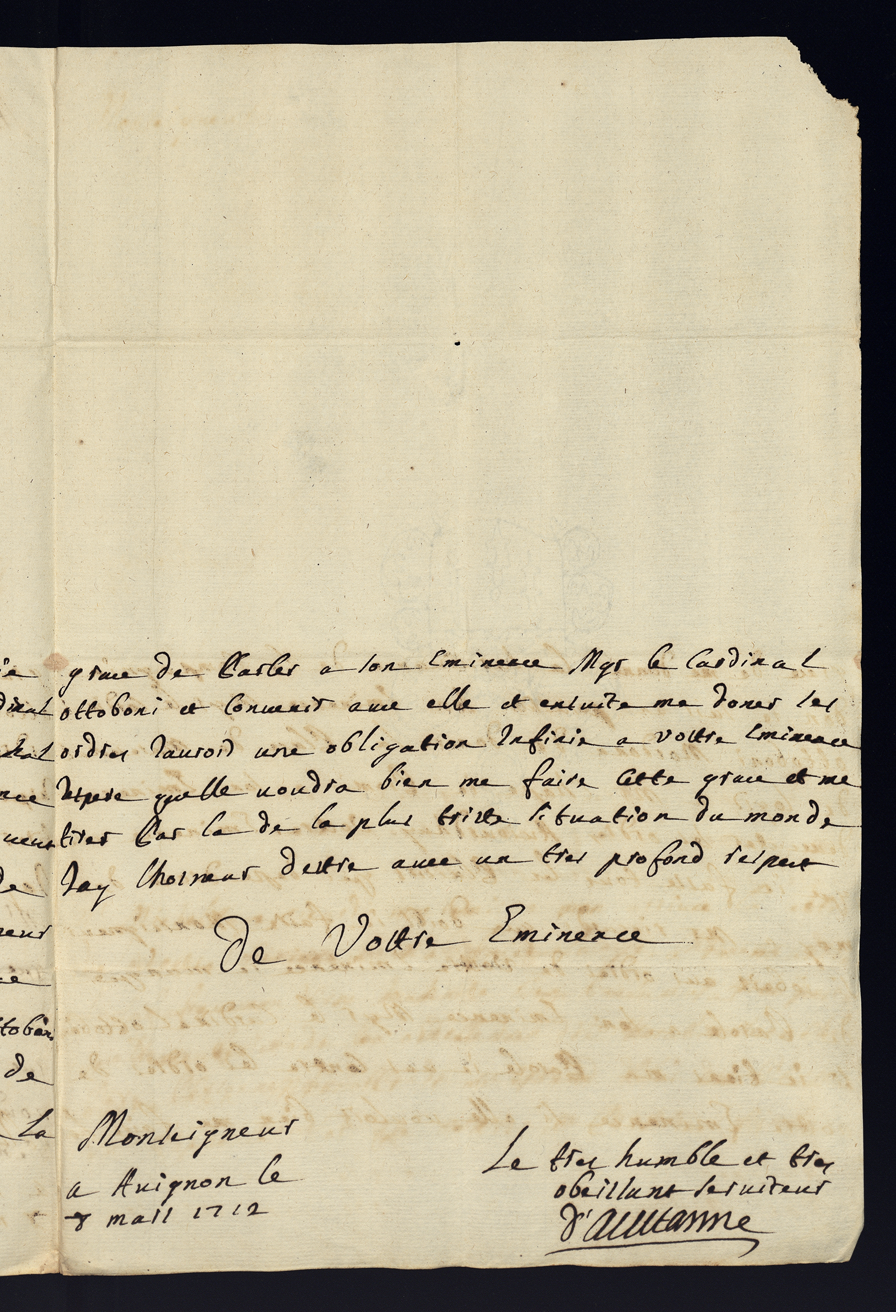 grace de Parler a son Eminence Mgr le Cardinal
ottoboni et Convenir avec elle et ensuite me doner ses
ordres Jauroid une obligation Infinie a vostre Eminence
Jespere quelle voudra bien me faire Cette grace et me
tirer Par la de la plus triste situation du monde
Jay lhonneur destre avec un tres profond respect
De Vostre Eminence
Monseigneur
a Avignon le
8 mars 1712
Le tres humble et tres
obeissant serviteur
d'autanne